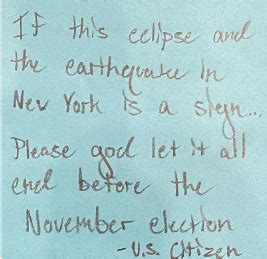 If this eclipse and
the earthquake in
New York is a sign...
Please god let it all
end before the
November election
-U.S. Citizen